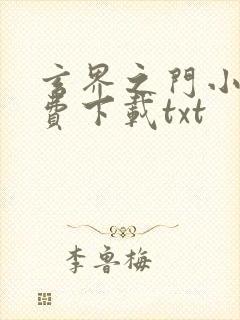 玄界之門小
費下載txt
李魯梅